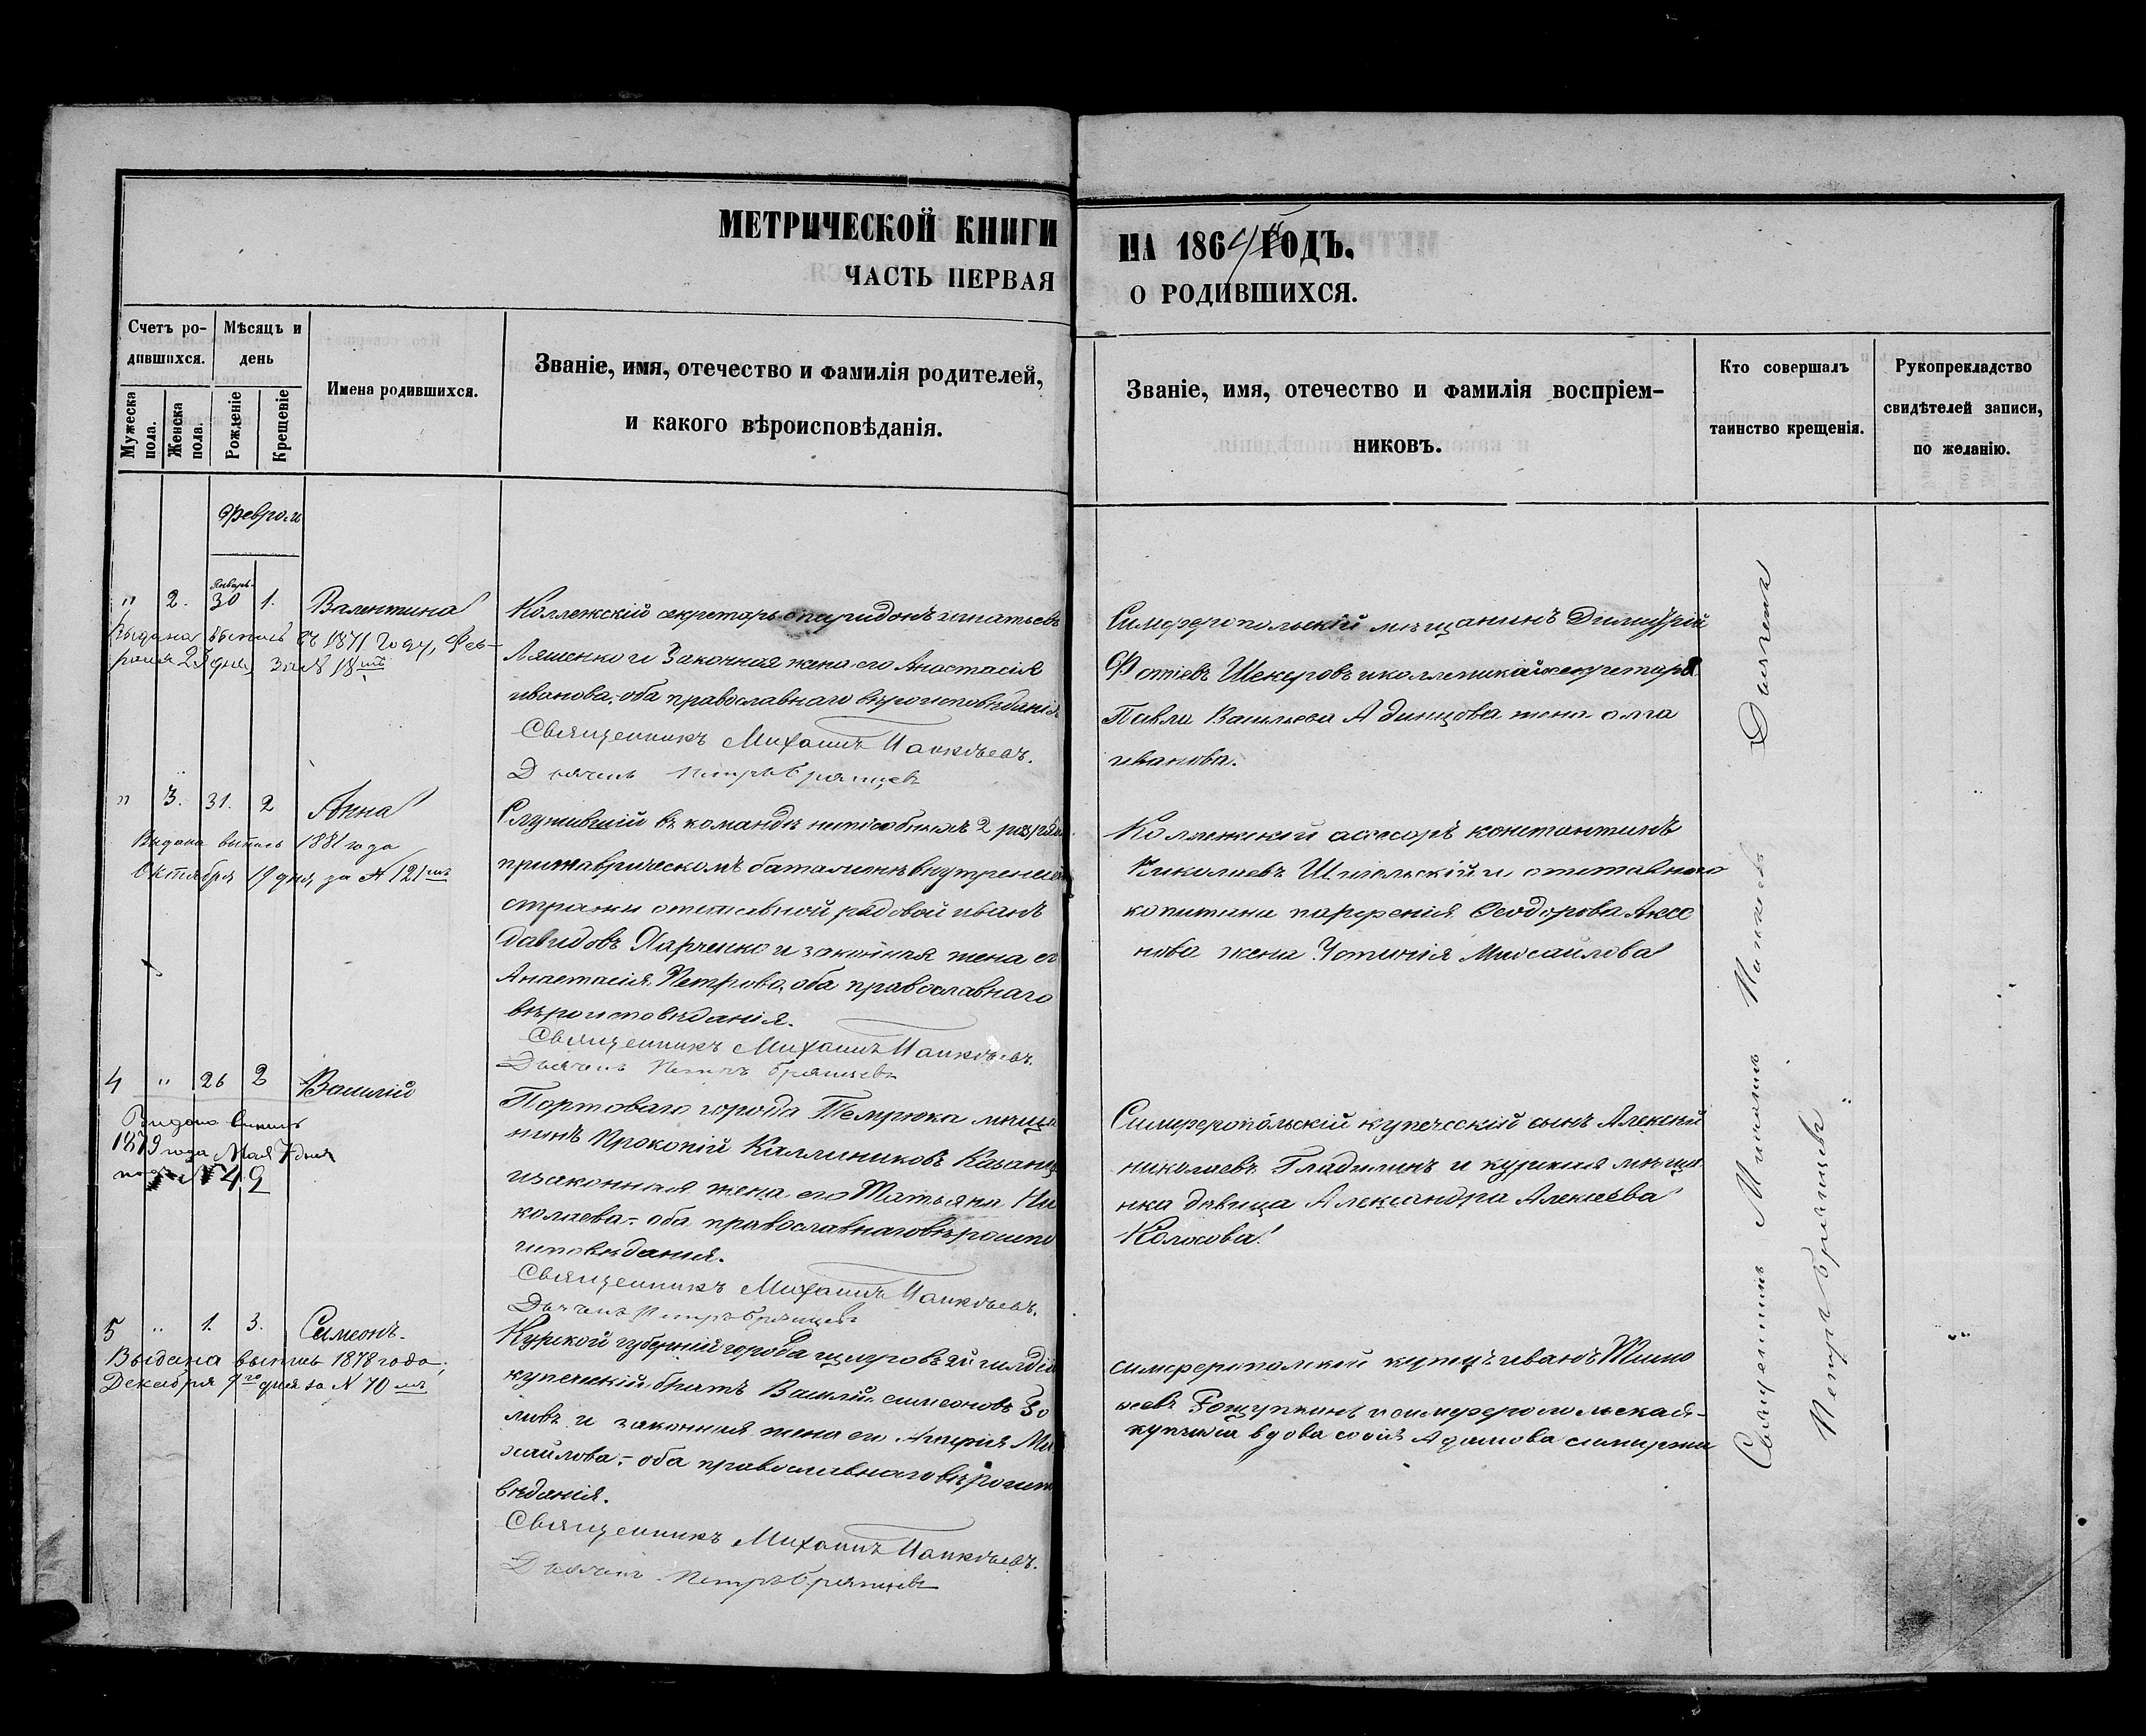 МЕТРИЧЕСКОЙ КНИГИ НА 1864 ГОДЪ.
ЧАСТЬ ПЕРВАЯ О РОДИВШИХСЯ.
Счетъ ро-
дившихся.
Мужеска пола.
Женска пола.
Мѣсяцъ и
день
Рожденіе
Крещеніе
Имена родившихся.
Званіе, имя, отечество и фамилія родителей,
и какого вѣроисповѣданія.
Званіе, имя, отечество и фамилія воспріем-
никовъ.
Кто совершалъ
таинство крещенія.
Рукоприкладство
свидѣтелей записи,
по желанію.
Январь
" 2. 30 1. Валентина
въ 1871 Году, Фев-
раля 23 дня, за № 18
Коллежскій секретарь Спиридонъ игнатьевъ
Ляшенко и Законная жена его Анастасія
иванова, оба православнаго вѣроисповѣданія
Священникъ Михаилъ
Дьячекъ Петръ Брянцевъ
Симферопольскій мѣщанинъ Димитрій
Фотіевъ Шекеровъ и секретаря
Павла Васильева Адинцова жена олга
иванова.
" 3. 31. 2 Анна
Выдана выпись 1881 года
Октября 19 дня, за № 121
Служившій въ командѣ неспособныхъ 2 разряда
притаврическомъ баталионѣ внутренней
стражи отставной рядовой иванъ
давидовъ Харченко и законная жена его
Анастасія Петрова, оба православнаго
вѣроисповѣданія.
Священникъ Михаилъ
Дьячекъ Петръ Брянцевъ
Коллежскій асесоръ константинъ
Николаевъ и отставнаго
капитана парфенія Ѳеодорова Аксе
нова жена Мисаилова
4 " 26 2 Василій
Выдана выпись
1879 года Мая 7 дня
подъ № 42
Портоваго города Темрюка мѣща
нинъ Прокопій Каллиниковъ
изаконная жена его Татьяна Ни
колаева, оба православнаго
исповѣданія.
Священникъ Михаилъ
Дьячекъ Петръ Брянцевъ
Симферопольскій купеческій сынъ Алексѣй
николаевъ Гладилинъ и курская мѣща
нка дѣвица Александра Алексѣева
Колосова.
5 " 1. 3. Симеонъ.
Выдана выпись 1878 года,
Декабря 9го дня за № 70
Курской губерніи города щигровъ 2й гилдіи
купеческій братъ Василій симеоновъ
и законная жена его Ми
хайлова, оба православнаго
вѣданія.
Священникъ Михаилъ
Дьячекъ Петръ Брянцевъ
симферополской купецъ иванъ Тимо
ѳеевъ Рощупкинъ и симферополская
вдова софія Адамова
Священникъ Михаилъ Дьячекъ
Петръ Брянцевъ